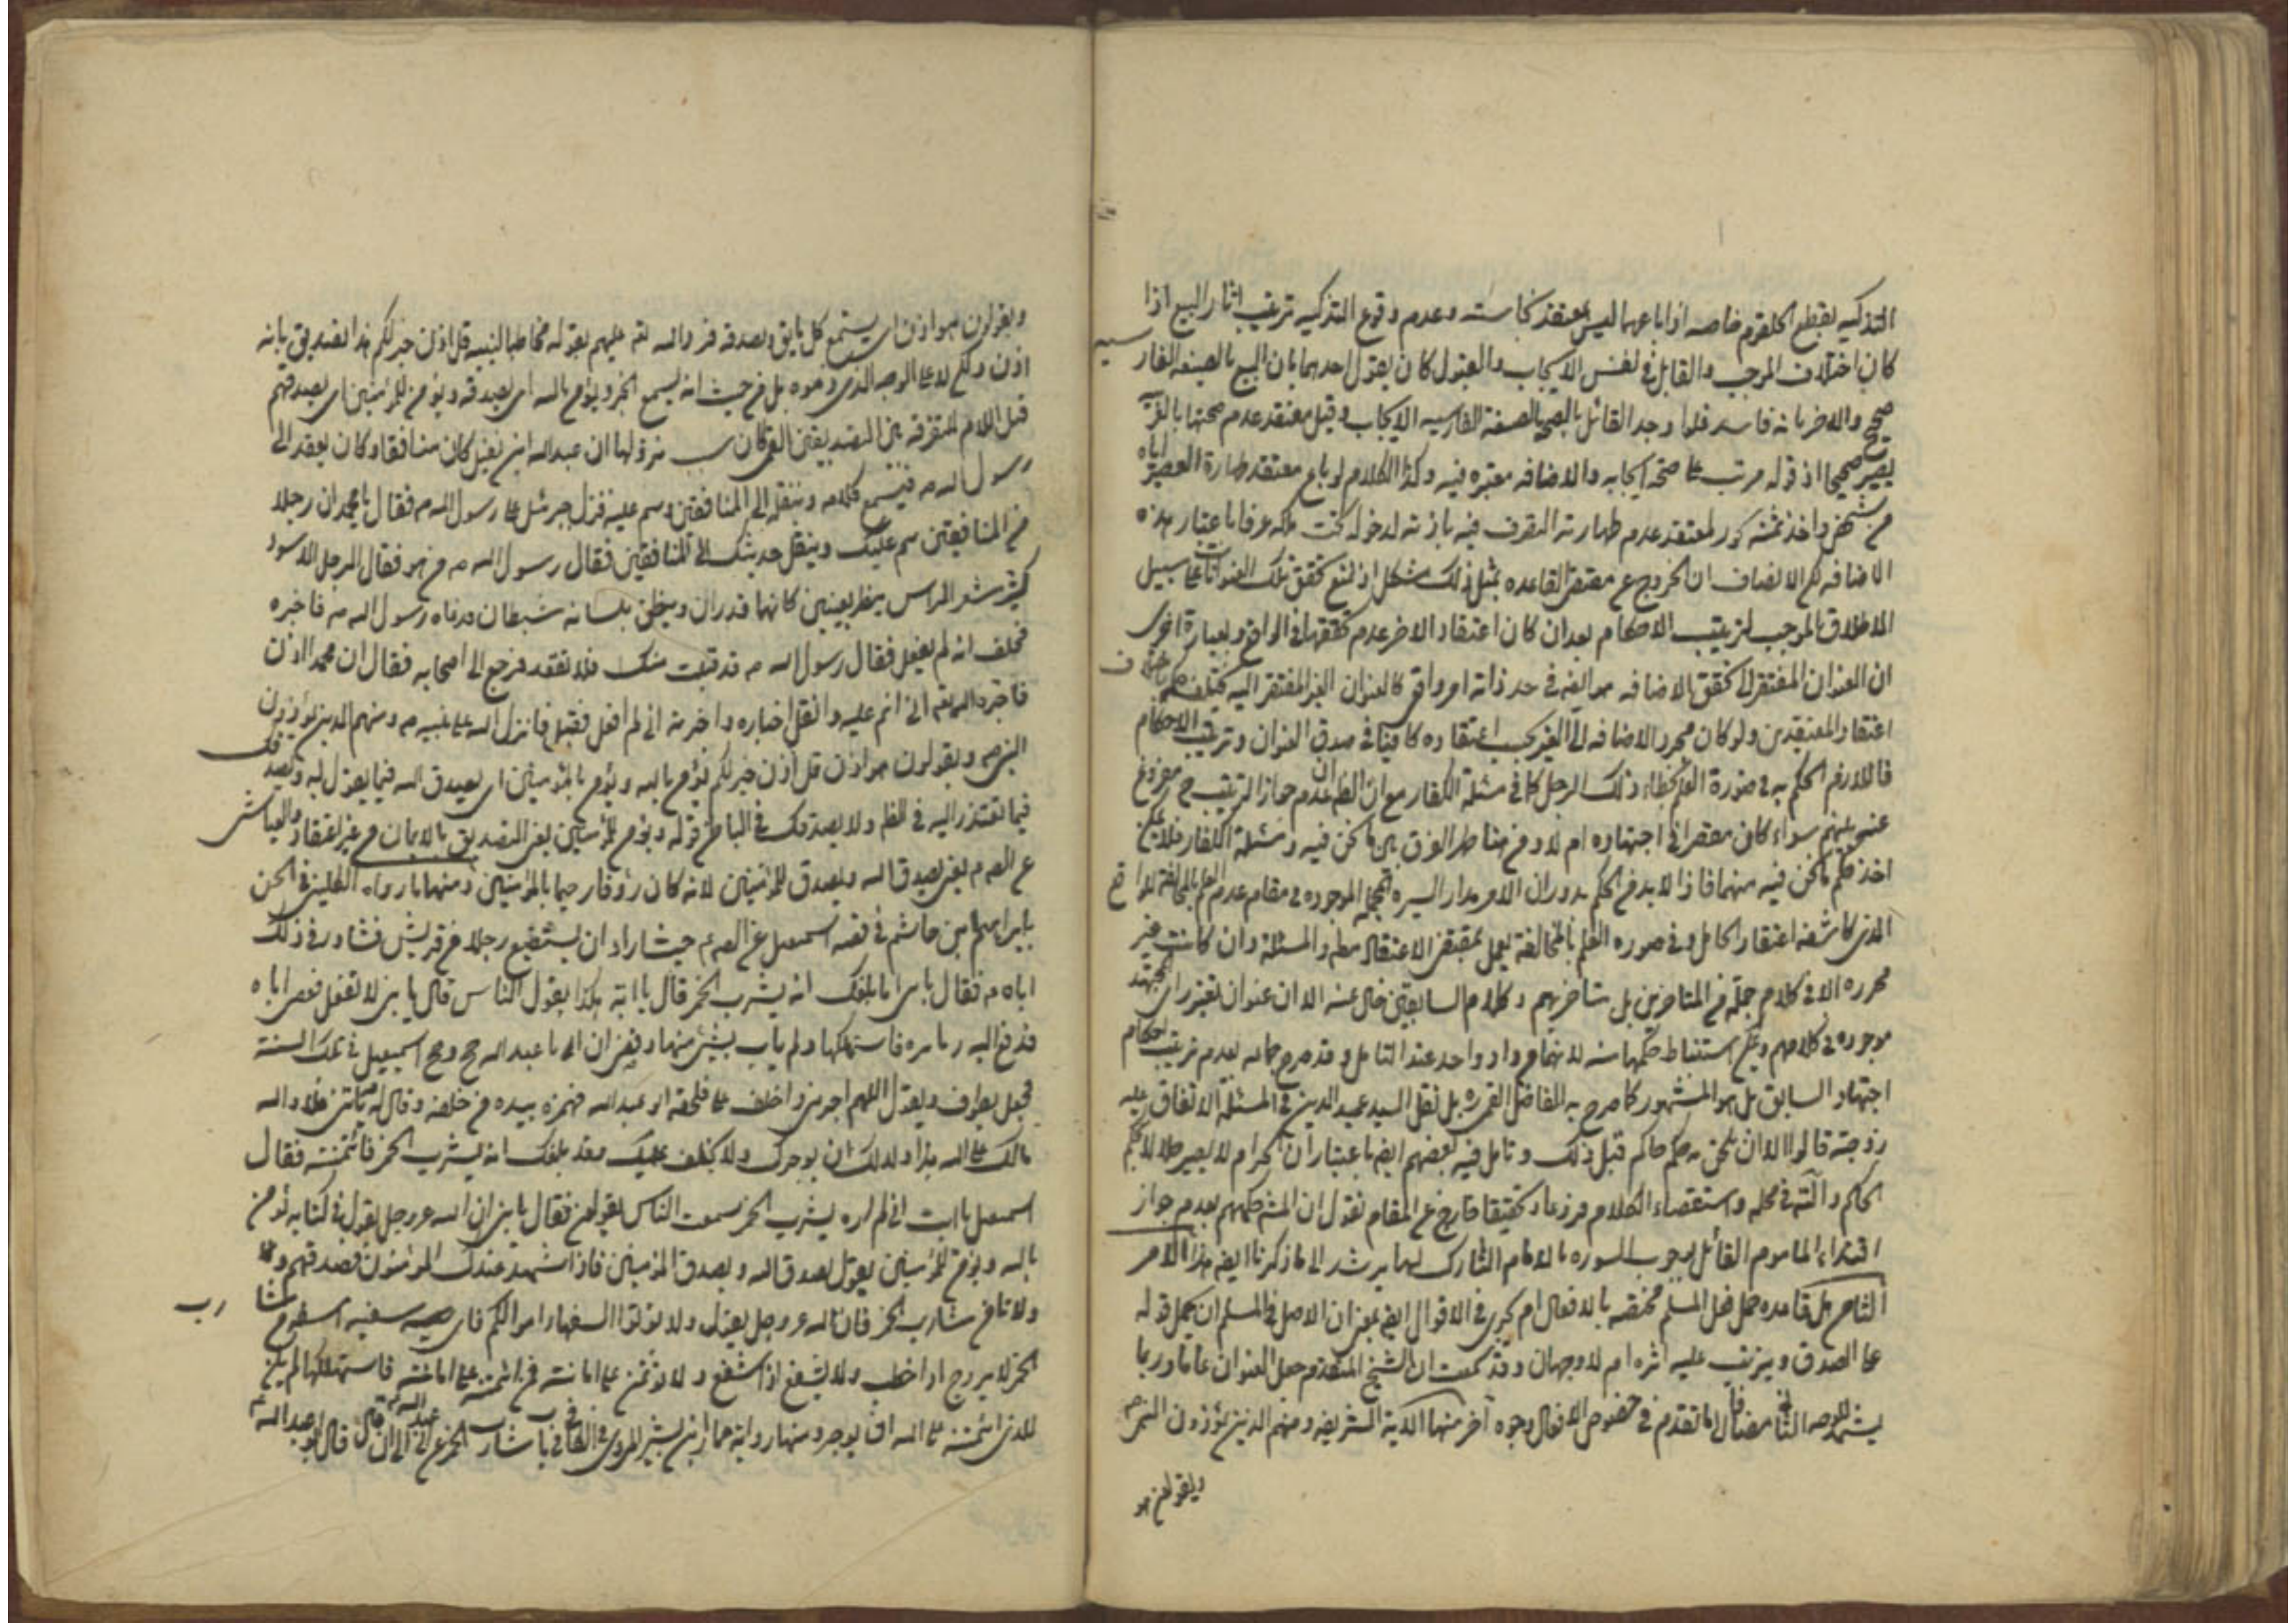 التذكيه بقطع الحلقوم خاصه اذا باعهما ليس بمعتقد نجاسته وعدم وقوع التذكيه ترتيب اثار البيع اذا
كان اختلاف الموجب والقابل في نفس الايجاب والقبول كان يقول احدهما بان البيع بالصيغه الفارسيه
صحيح والاخر بانه فاسد فلو وجد القائل بالصحه بالصيغة الفارسيه الايجاب وقبل معتقد عدم صحتها بالعربيه
يصير صحيحا اذ قوله مرتب على صحة ايجابه والاضافه معتبره فيه وكذا الكلام لو باع معتقد طهارة العصير اياه
من شخص واخذ ثمنه جوز لمعتقد عدم طهارته التصرف فيه باذنه لدخوله تحت ملكه عرفا باعتبار هذه
الاضافه لكن الانصاف ان الخروج عن مقتضى القاعده بمثل ذلك مشكل اذ لنمنع تحقق تلك العنوانات على سبيل
الاطلاق الموجب لترتيب الاحكام بعد ان كان اعتقاد الاخر عدم تحققها في الواقع وبعبارة اخرى
ان العنوان المفتقر الى تحقق الاضافه هو ايضا في حد ذاته امر واقعى كالعنوان الغير المفتقر اليه يختلف حكمه باختلاف
اعتقاد المعتقدين ولو كان مجرد الاضافه الى الغير بحسب اعتقاده كافيا في صدق العنوان وترتيب الاحكام
فاللازم الحكم به في صورة العلم بخطاء ذلك الرجل كما في مسئلة الكفار مع ان الظ ان عدم جواز الترتيب ح مفروغ
عنه بينهم سواء كان مقصرا في اجتهاده ام لا ومن هنا ظهر الفرق بين ما نحن فيه ومسئلة الكفار فلا يمكن
اخذ حكم ما نحن فيه منهما فاذا لابد في الحكم بدوران الامر مدار السيره الموجوده في مقام عدم العلم بالمخالفة للواقع
الذى كاشفه اعتقاد الحامل وفي صوره العلم بالمخالفة يعمل بمقتضى الاعتقاد مطلقا والمسئلة وان كانت غير
محرره الا في كلام جملة من المتاخرين بل متاخريهم وكلام السابقين خال عنه الا ان عنوان تغير راى المجتهد
موجوده في كلامهم ويمكن استنباط حكمها منه لانهما من واد واحد عند التامل وقد صرح جماعه بعدم ترتيب احكام
اجتهاد السابق بل هو المشهور كما صرح به الفاضل القمى ره بل نقل السيد عميد الدين في المسئلة الاتفاق عليه
زوجته قالوا الا ان يكون به حكم حاكم قبل ذلك وتامل فيه بعضهم ايضا باعتبار ان الحرام لا يصير حلالا بحكم
الحاكم وانه في محله واستقصاء الكلام فرزعاد تحقيقا خارج عن المقام نقول ان المشهور حكمهم بعدم جواز
اقتداء الماموم القائل بوجوب السوره بالامام التارك لها يرشد الى ما ذكرنا ايضا هذا الامر
الثامن هل قاعده حمل فعل المسلم مختصه بالافعال ام يجرى في الاقوال ايضا بمعنى ان الاصل في المسلم ان يحمل قوله
على الصدق ويترتب عليه اثره ام لا وجهان وقد سمعت ان الشيخ المتقدم جعل العنوان عاما وربما
يشهد للوجه الثانى مضافا لما تقدم في خصوص الافعال وجوه آخر منها الاية الشريفه ومنهم الذين يؤذون النبى ص
ويقولون هو
ويقولون هو اذن اى يستمع كل ما يق ويصدقه فرد الله تعه عليهم بقوله مخاطبا لنبيه قل اذن خير لكم هذا تصديق بانه
اذن ولكن لا على الوجه الذى ذموه بل من حيث انه يسمع الخير ويؤمن بالله اى يصدقه ويؤمن للمؤمنين اى يصدقهم
قيل اللام للتفرقه بين التصديقين القمى كان سبب نزولها ان عبدالله ابن نفيل كان منافقا وكان يقعد الى
رسول الله ص فيسمع كلامه وينقله الى المنافقين وينم عليه فنزل جبرئيل على رسول الله ص فقال يا محمد ان رجلا
من المنافقين ينم عليك وينقل حديثك الى المنافقين فقال رسول الله ص من هو فقال الرجل الاسود
كثير شعر الراس ينظر بعينين كانهما قدران وينطق بلسانه شيطان فدعاه رسول الله ص فاخبره
فحلف انه لم يفعل فقال رسول الله ص قد قبلت منك فلا تقعد فرجع الى اصحابه فقال ان محمدا اذن
فاخبره الله تعه انى انم عليه وانقل اخباره واخبرته انى لم افعل فقبل فانزل الله على نبيه ص ومنهم الذين يؤذون
النبى ص ويقولون هو اذن قل اذن خير لكم يؤمن بالله ويؤمن للمؤمنين اى يصدق الله فيما يقول له ويصدقك
فيما تعتذر اليه في الظاهر ولا يصدقك في الباطن قوله ويؤمن للمؤمنين يعنى التصديق بالايمان من غير اعتقاد والعياشى
عن الصه ع يعنى يصدق الله ويصدق للمؤمنين لانه كان رؤفا رحيما بالمؤمنين ومنها ما رواه الكلينى في الحسن
بابراهيم بن هاشم في قصه اسمعيل عن الصه ع حيث اراد ان يستبضع رجلا من قريش فشاور في ذلك
اباه ع فقال يا بنى اما بلغك انه يشرب الخمر قال يا ابه هكذا يقول الناس قال يا بنى لا تفعل فعصى اباه
فدفع اليه دنانيره فاستهلكها ولم ياب بشئ منها وقضى ان ابا عبدالله حج وحج اسمعيل في تلك السنة
فجعل يطوف ويقول اللهم اجرنى واخلف على فلحقه ابو عبدالله فهمزه بيده من خلفه وقال له يا بنى فلا والله
مالك على الله هذا ولا لك ان يوجرك ولا يخلف عليك وقد بلغك انه يشرب الخمر فائتمنته فقال
اسمعيل يا ابت انى لم اره يشرب الخمر سمعت الناس يقولون فقال يا بنى ان الله عز وجل يقول في كتابه يؤمن
بالله ويؤمن للمؤمنين يقول يصدق الله ويصدق المؤمنين فاذا شهد عندك المؤمنون فصدقهم
ولا تامن شارب الخمر فان الله عز وجل يقول ولا تؤتوا السفهاء اموالكم فاى سفيه اسفه من شارب
الخمر لا يزوج اذا خطب ولا يشفع اذا شفع ولا يؤتمن على امانته فمن ائتمنه على امانته فاستهلكها لم يكن
للذى ائتمنه على الله ان يوجره ومنها رواية حماد بن بشير المروى في الكافى في باب شارب الخمر عن ابى عبدالله ع قال قال